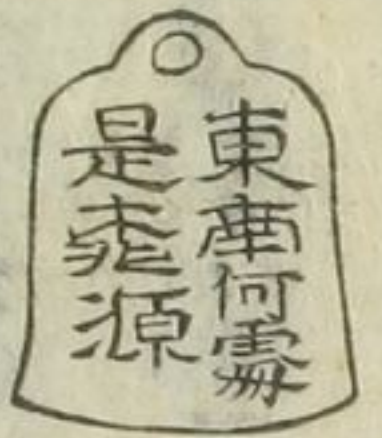 東南何處
是桃源